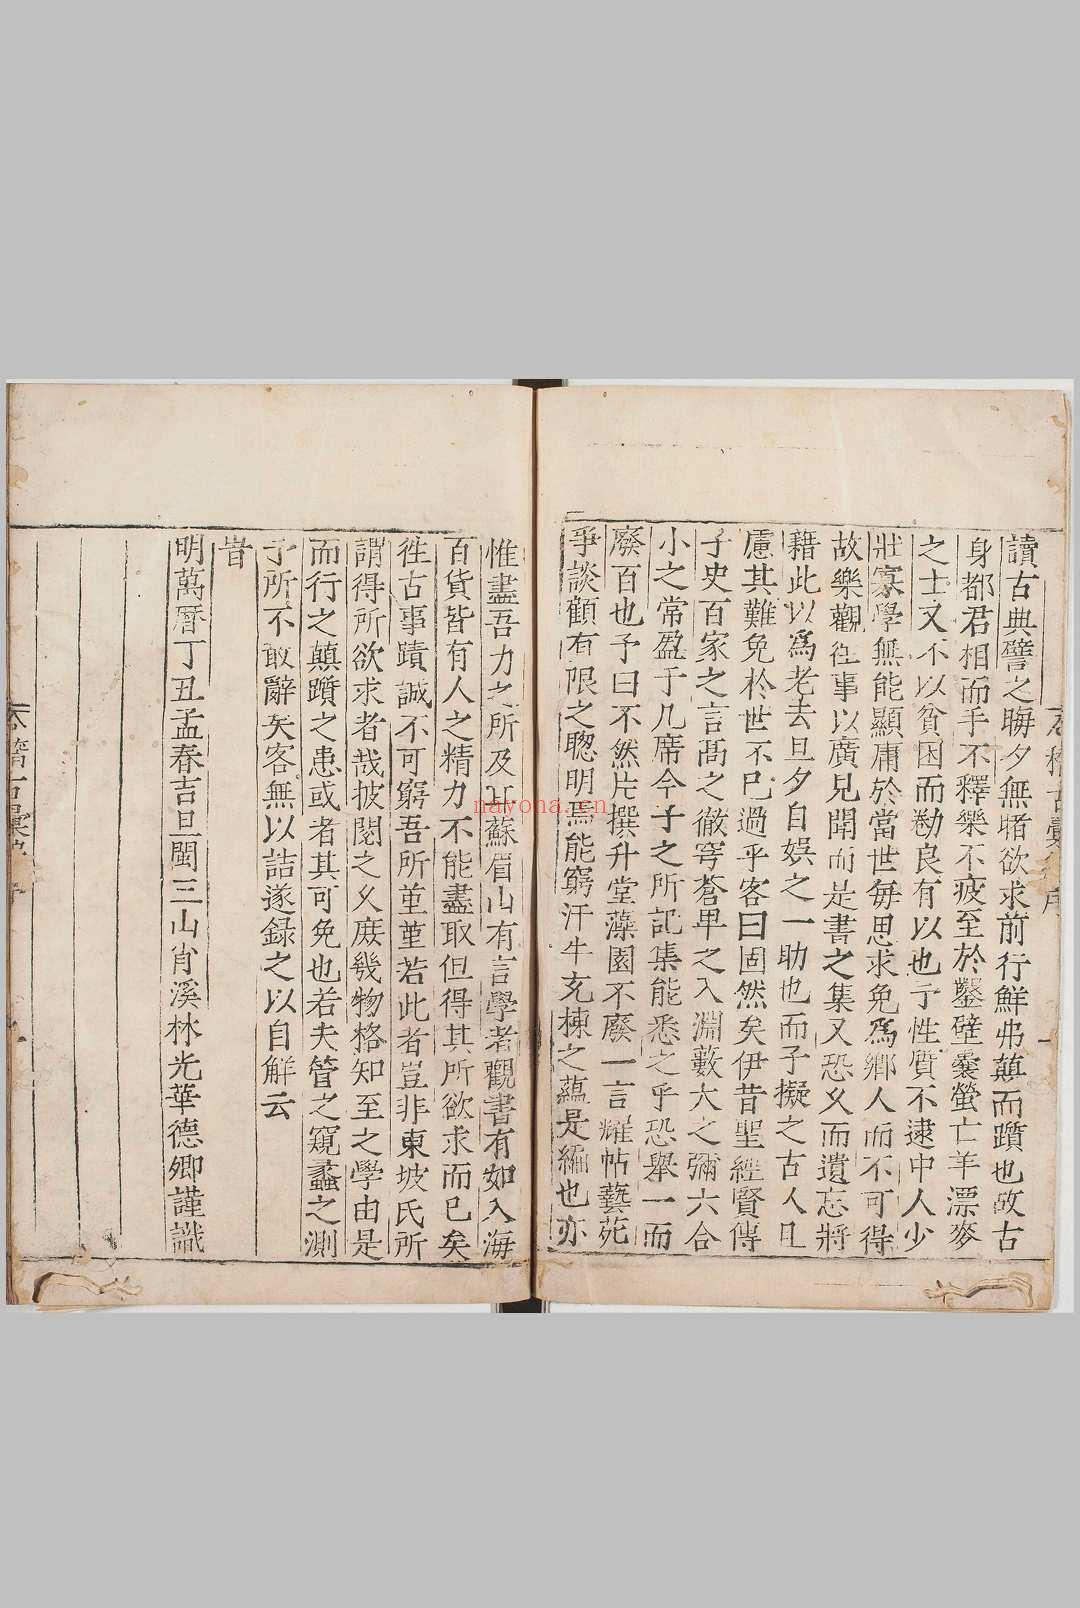 讀古典譬之晦夕無睹欲求前行鮮弗蔪而躓也故古
身都君相而手不釋樂不疲至於鑿壁囊螢亡羊漂麥
之士又不以貧困而勌良有以也予性質不逮中人少
壯寡學無能顯庸於當世每思求免爲鄉人而不可得
故樂觀往事以廣見聞而是書之集又恐乆而遺忘將
藉此以爲老去旦夕自娛之一助也而予擬之古人且
慮其難免於世不已過乎客曰固然矣伊昔聖經賢傳
子史百家之言高之徹穹蒼卑之入淵藪大之彌六合
小之常盈于几席今子之所記集能悉之乎恐舉一而
廢百也予曰不然片撰升堂藻園不廢一言耀帖藝苑
爭談顧有限之聰明焉能窮汗牛充棟之蘊是編也亦
惟盡吾力之所及耳蘇眉山有言學者觀書有如入海
百貨皆有人之精力不能盡取但得其所欲求而已矣
徃古事蹟誠不可窮吾所堇堇若此者豈非東坡氏所
謂得所欲求者哉披閱之乆庶幾物格知至之學由是
而行之顛躓之患或者其可免也若夫管之窺蠡之測
予所不敢辭矣客無以詰遂録之以自解云
旹
明萬曆丁丑孟春吉旦閩三山肖溪林光華德卿謹識
nayona.cn